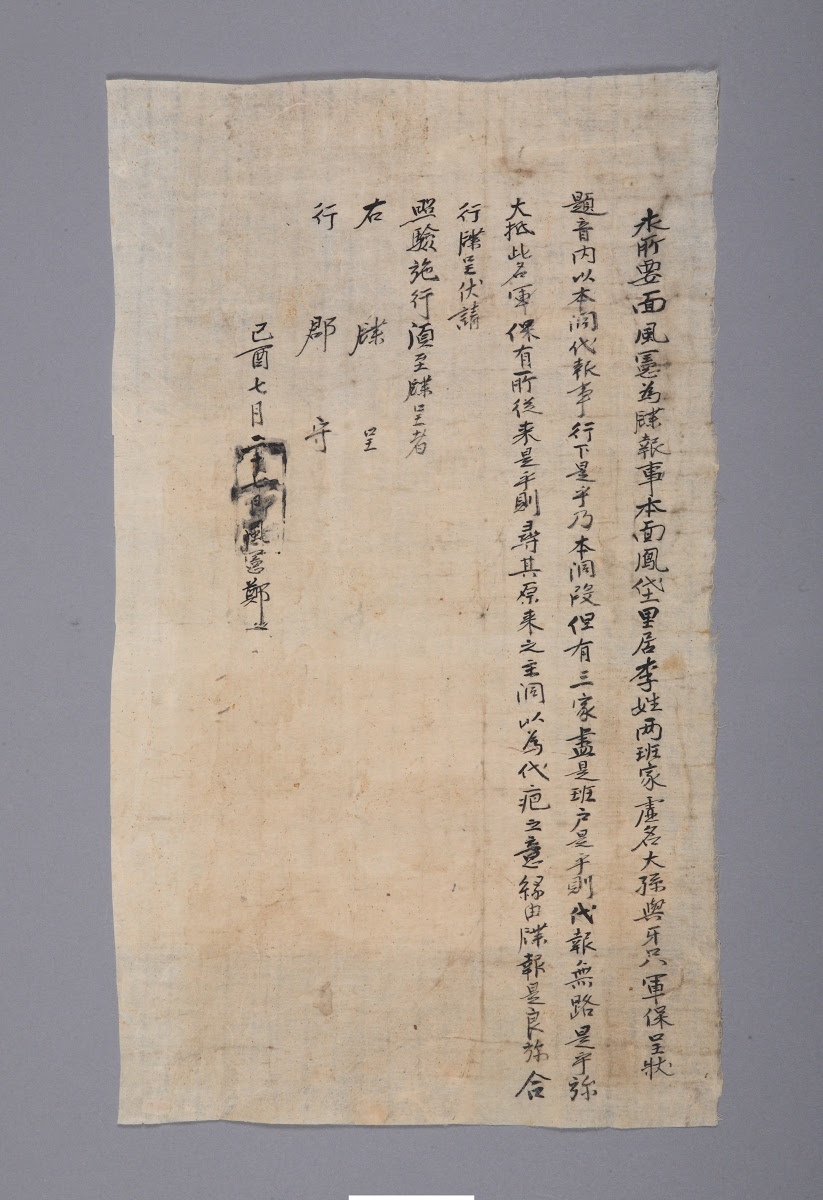 水所要面風憲為牒報事本面鳳垈里居李姓两班家虛名大孫與牙只軍保呈狀
題音內以本洞代報事行下是乎乃本洞段但有三家盡是班戶是乎則代報無路是乎旀
大抵此名軍保有所從来是乎則尋其原来之主洞以為代疤之意緣由牒報是良旀合
行牒呈伏請
照驗施行湏至牒呈者
右牒呈
行郡守
己酉七月二十七日風憲鄭